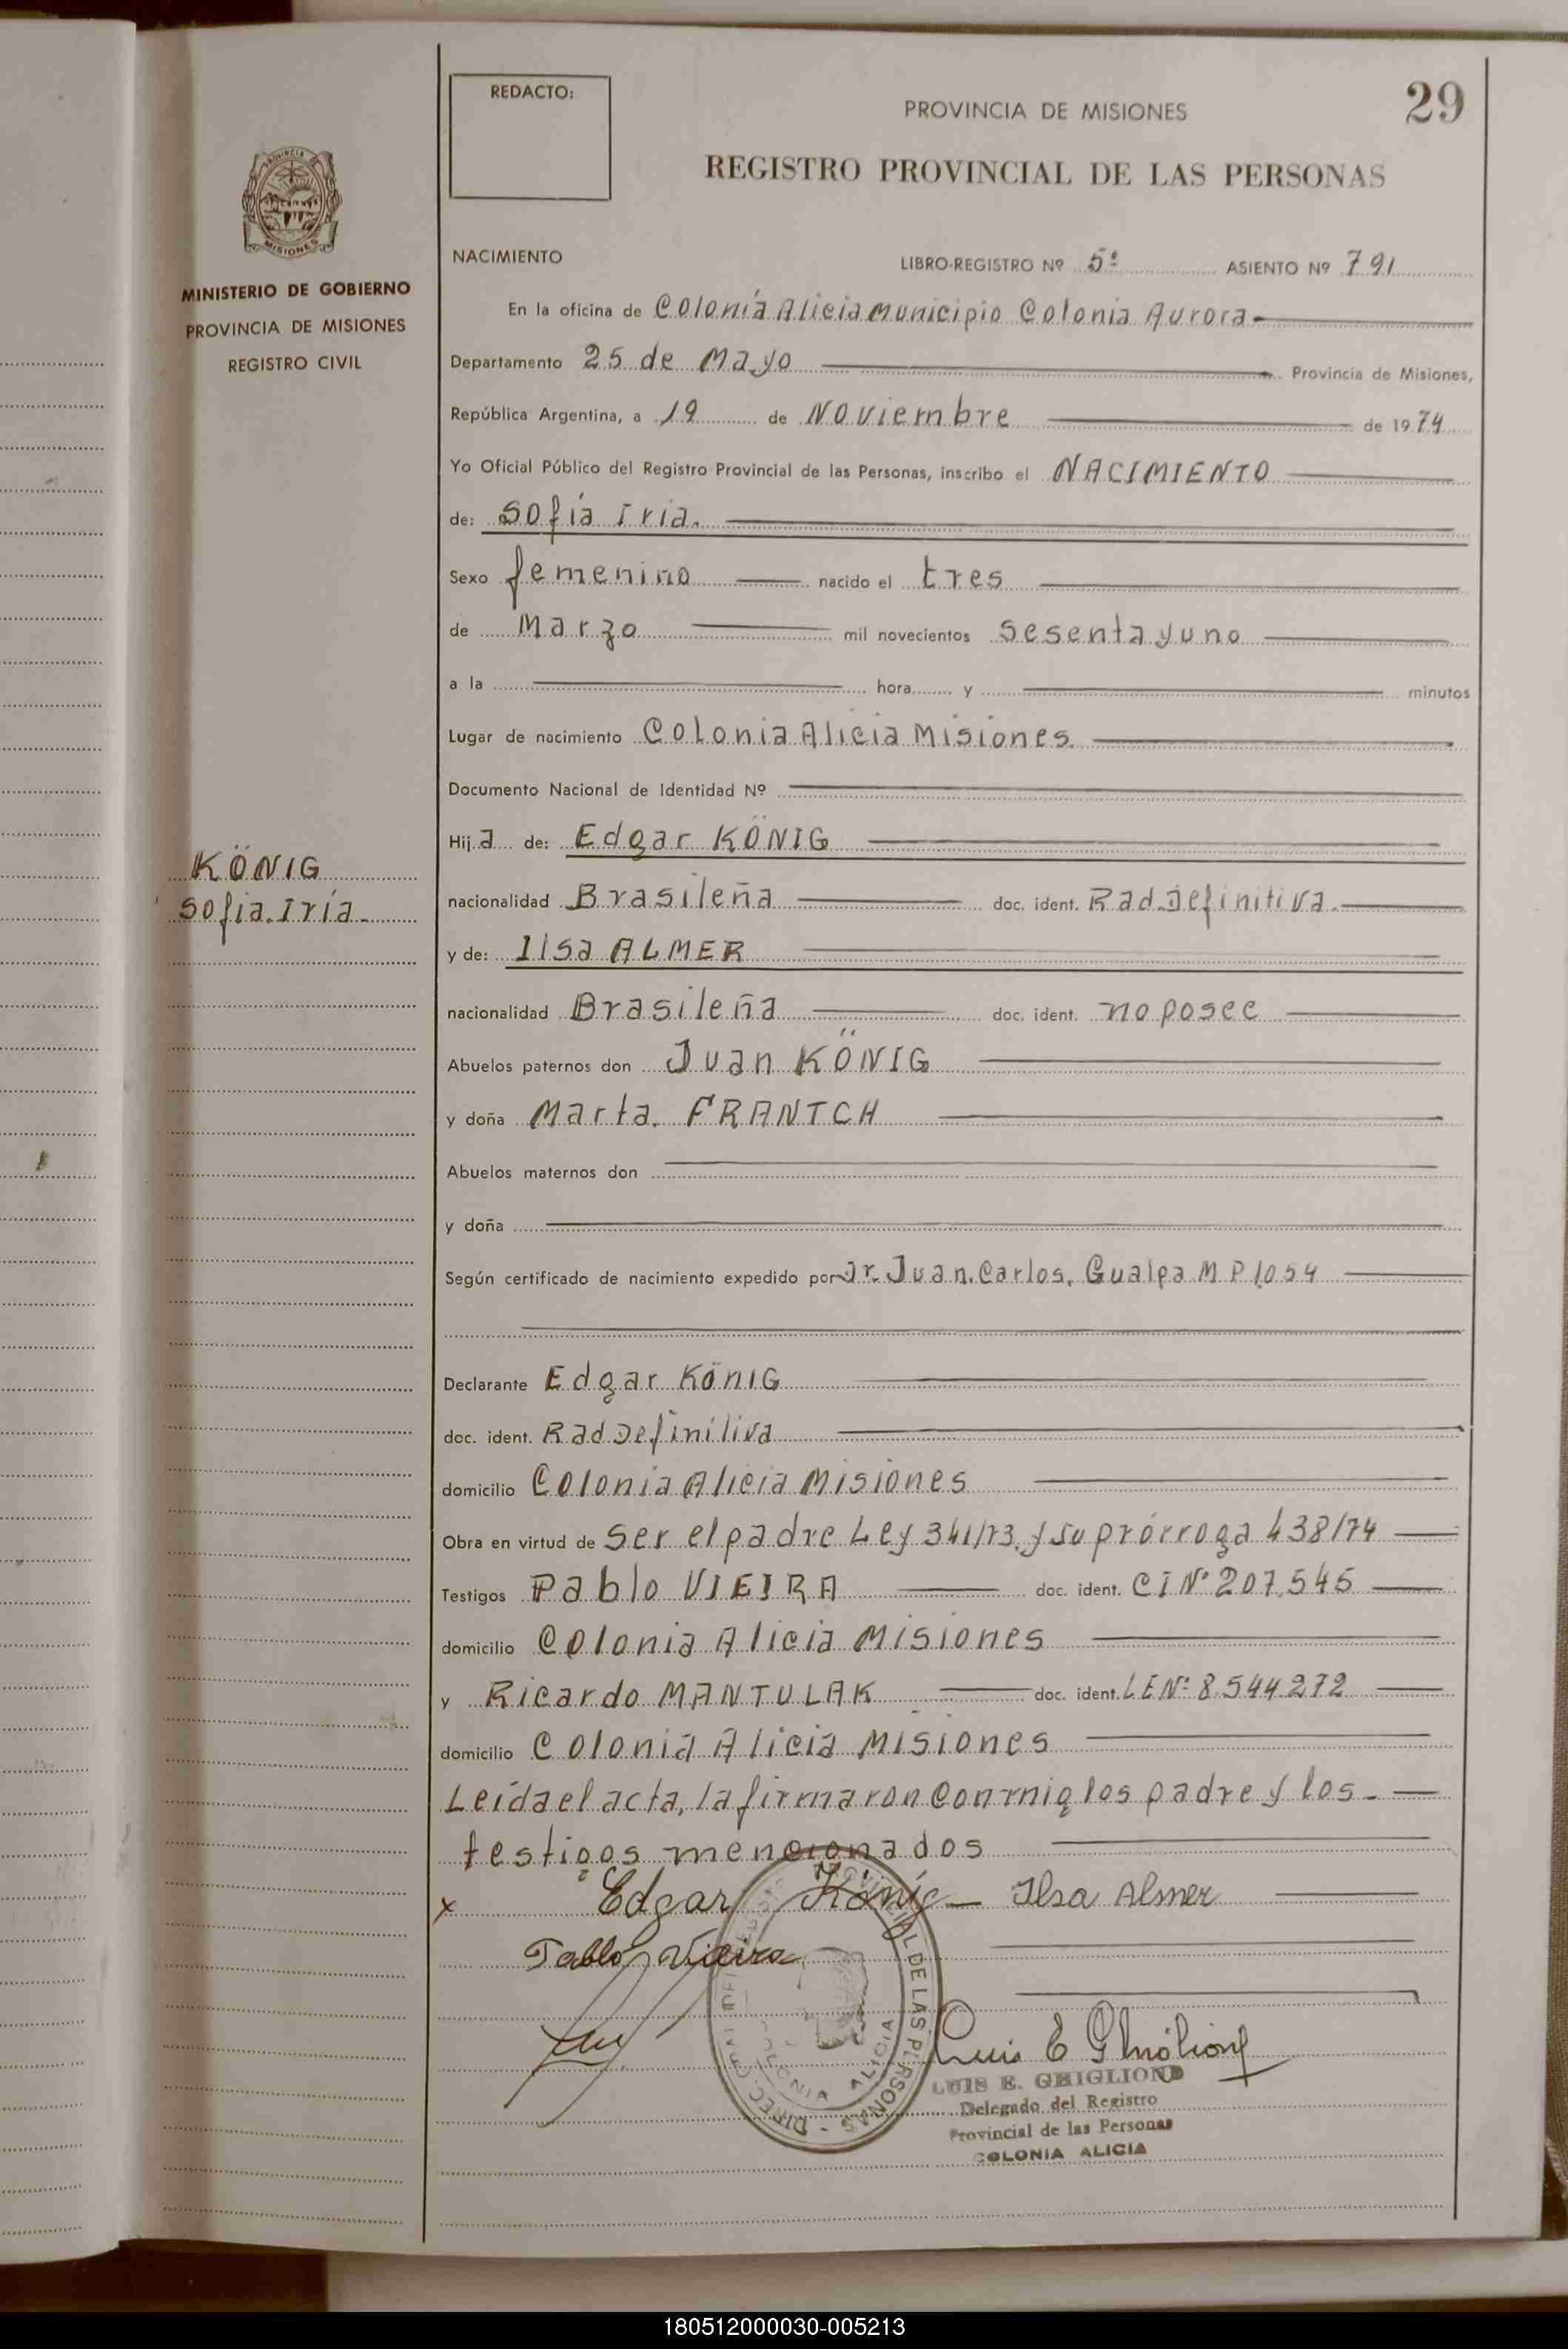 29
REDACTO:
PROVINCIA DE MISIONES
REGISTRO PROVINCIAL DE LAS PERSONAS
PROVINCIA DE
MISIONES
MINISTERIO DE GOBIERNO
PROVINCIA DE MISIONES
REGISTRO CIVIL
NACIMIENTO LIBRO-REGISTRO Nº 5º ASIENTO Nº 791
En la oficina de Colonia Alicia Municipio Colonia Aurora
Departamento 25 de Mayo Provincia de Misiones,
República Argentina, a 19 de Noviembre de 1974
Yo Oficial Público del Registro Provincial de las Personas, inscribo el NACIMIENTO
de: Sofía Iria.
Sexo femenino nacido el tres
de Marzo mil novecientos sesenta y uno
a la hora y minutos
Lugar de nacimiento Colonia Alicia Misiones.
Documento Nacional de Identidad Nº
Hija de: Edgar KÖNIG
KÖNIG
Sofia Iría.
nacionalidad Brasileña doc. ident. Rad Definitiva.
y de: Ilsa ALMER
nacionalidad Brasileña doc. ident. no posee
Abuelos paternos don Juan KÖNIG
y doña Marta. FRANTCH
Abuelos maternos don
y doña
Según certificado de nacimiento expedido por Dr. Juan. Carlos. Gualpa M P 1054
Declarante Edgar König
doc. ident. Rad Definitiva
domicilio Colonia Alicia Misiones
Obra en virtud de ser el padre Ley 341/73. y su prórroga 438/74
Testigos Pablo VIEIRA doc. ident. CI Nº 207.545
domicilio Colonia Alicia Misiones
y Ricardo MANTULAK doc. ident. LE Nº 8.544.272
domicilio Colonia Alicia Misiones
Leída el acta, la firmaron conmigo los padre y los
testigos mencionados
x Edgar König Ilsa Almer
Pablo Vieira
DE LAS PERSONAS
COLONIA ALICIA
Luis E Ghiglione
LUIS E. GHIGLIONE
Delegado del Registro
Provincial de las Personas
COLONIA ALICIA
180512000030-005213